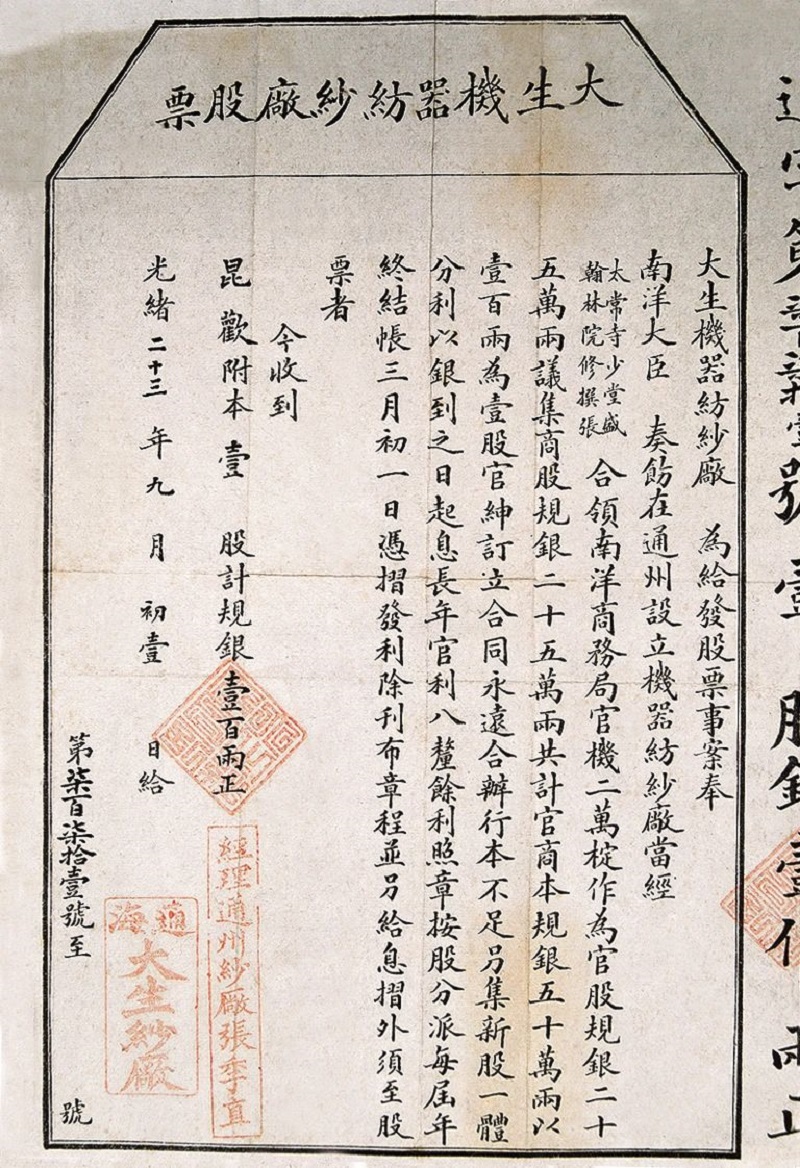 大生機器紡紗廠股票
大生機器紡紗廠　為給發股票事案奉
南洋大臣　奏飭在通州設立機器紡紗廠當經
太常寺少堂盛
翰林院修撰張
合領南洋商務局官機二萬椗作為官股規銀二十
五萬兩議集商股規銀二十五萬兩共計官商本規銀五十萬兩以
壹百兩為壹股官紳訂立合同永遠合辦行本不足另集新股一體
分利以銀到之日起息長年官利八釐餘利照章按股分派每届年
終結帳三月初一日憑摺發利除刊布章程並另給息摺外須至股
票者
今收到
昆歡附本壹　股計規銀壹百兩正
光緒二十三年九月初壹日給
第柒百柒拾壹號至　號
經理通州紗廠張季直
通海
大生紗廠
號壹股
兩正